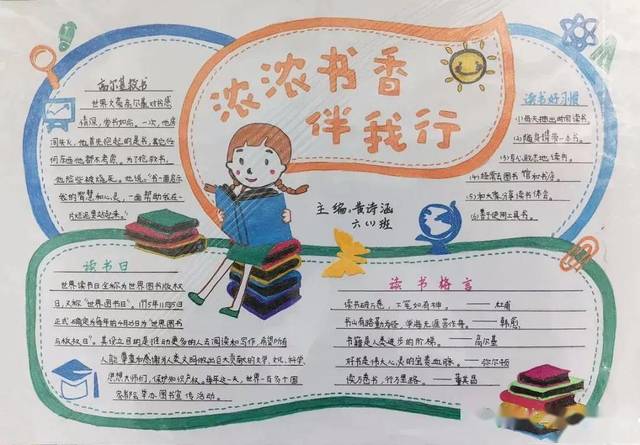 浓浓书香
伴我行
主编:黄诗涵
六(1)班
高尔基救书
世界文豪高尔基对书感
情深,爱书如命。一次,他房
间失火,他首先抱起的是书,其它任
何东西他都不考虑。为了抢救书,
他险些被烧死。他说:"书一面启示
我的智慧和心灵,一面帮助我在一
片起来。"
读书好习惯
(1)每天抽出时间读书
(2)随身携带一本书。
(3)专心致志地读书。
(4)经常去图书馆和书店。
(5)和大家分享读书体会。
(6)善于使用工具书。
读书日
世界读书日全称为世界图书版权
日,又称"世界图书日"。1995年11月15日
正式确定为每年的4月23日为"世界图书
与版权日"。其设立目的是推动更多的人去阅读和写作,希望所有
人能尊重和感谢为人类文明做出巨大贡献的文学,文化,科学,
思想大师们,保护知识产权。每年这一天,世界一百多个国
家都会举办图书宣传活动。
读书格言
读书破万卷,下笔如有神。——杜甫
书山有路勤为径,学海无涯苦作舟。——韩愈
书籍是人类进步的阶梯。——高尔基
好书是伟大心灵的宝贵血脉。——弥尔顿
读万卷书,行万里路。——董其昌